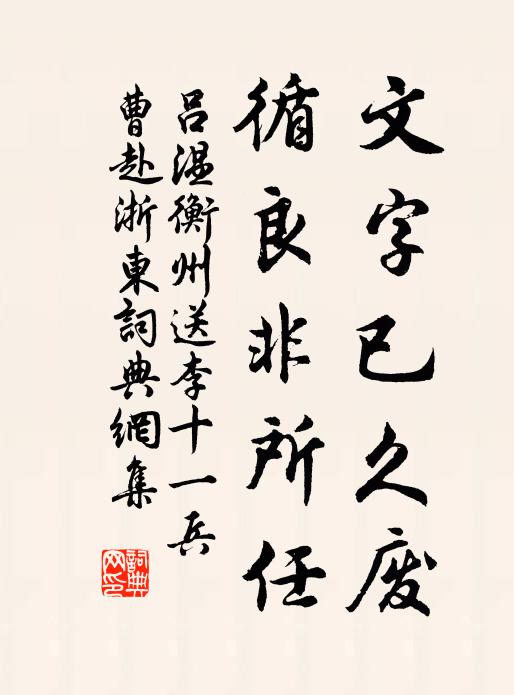 文字已久废
循良非所任
吕温衡州送李十一兵
曹赴浙東詞典網集
詞典网印